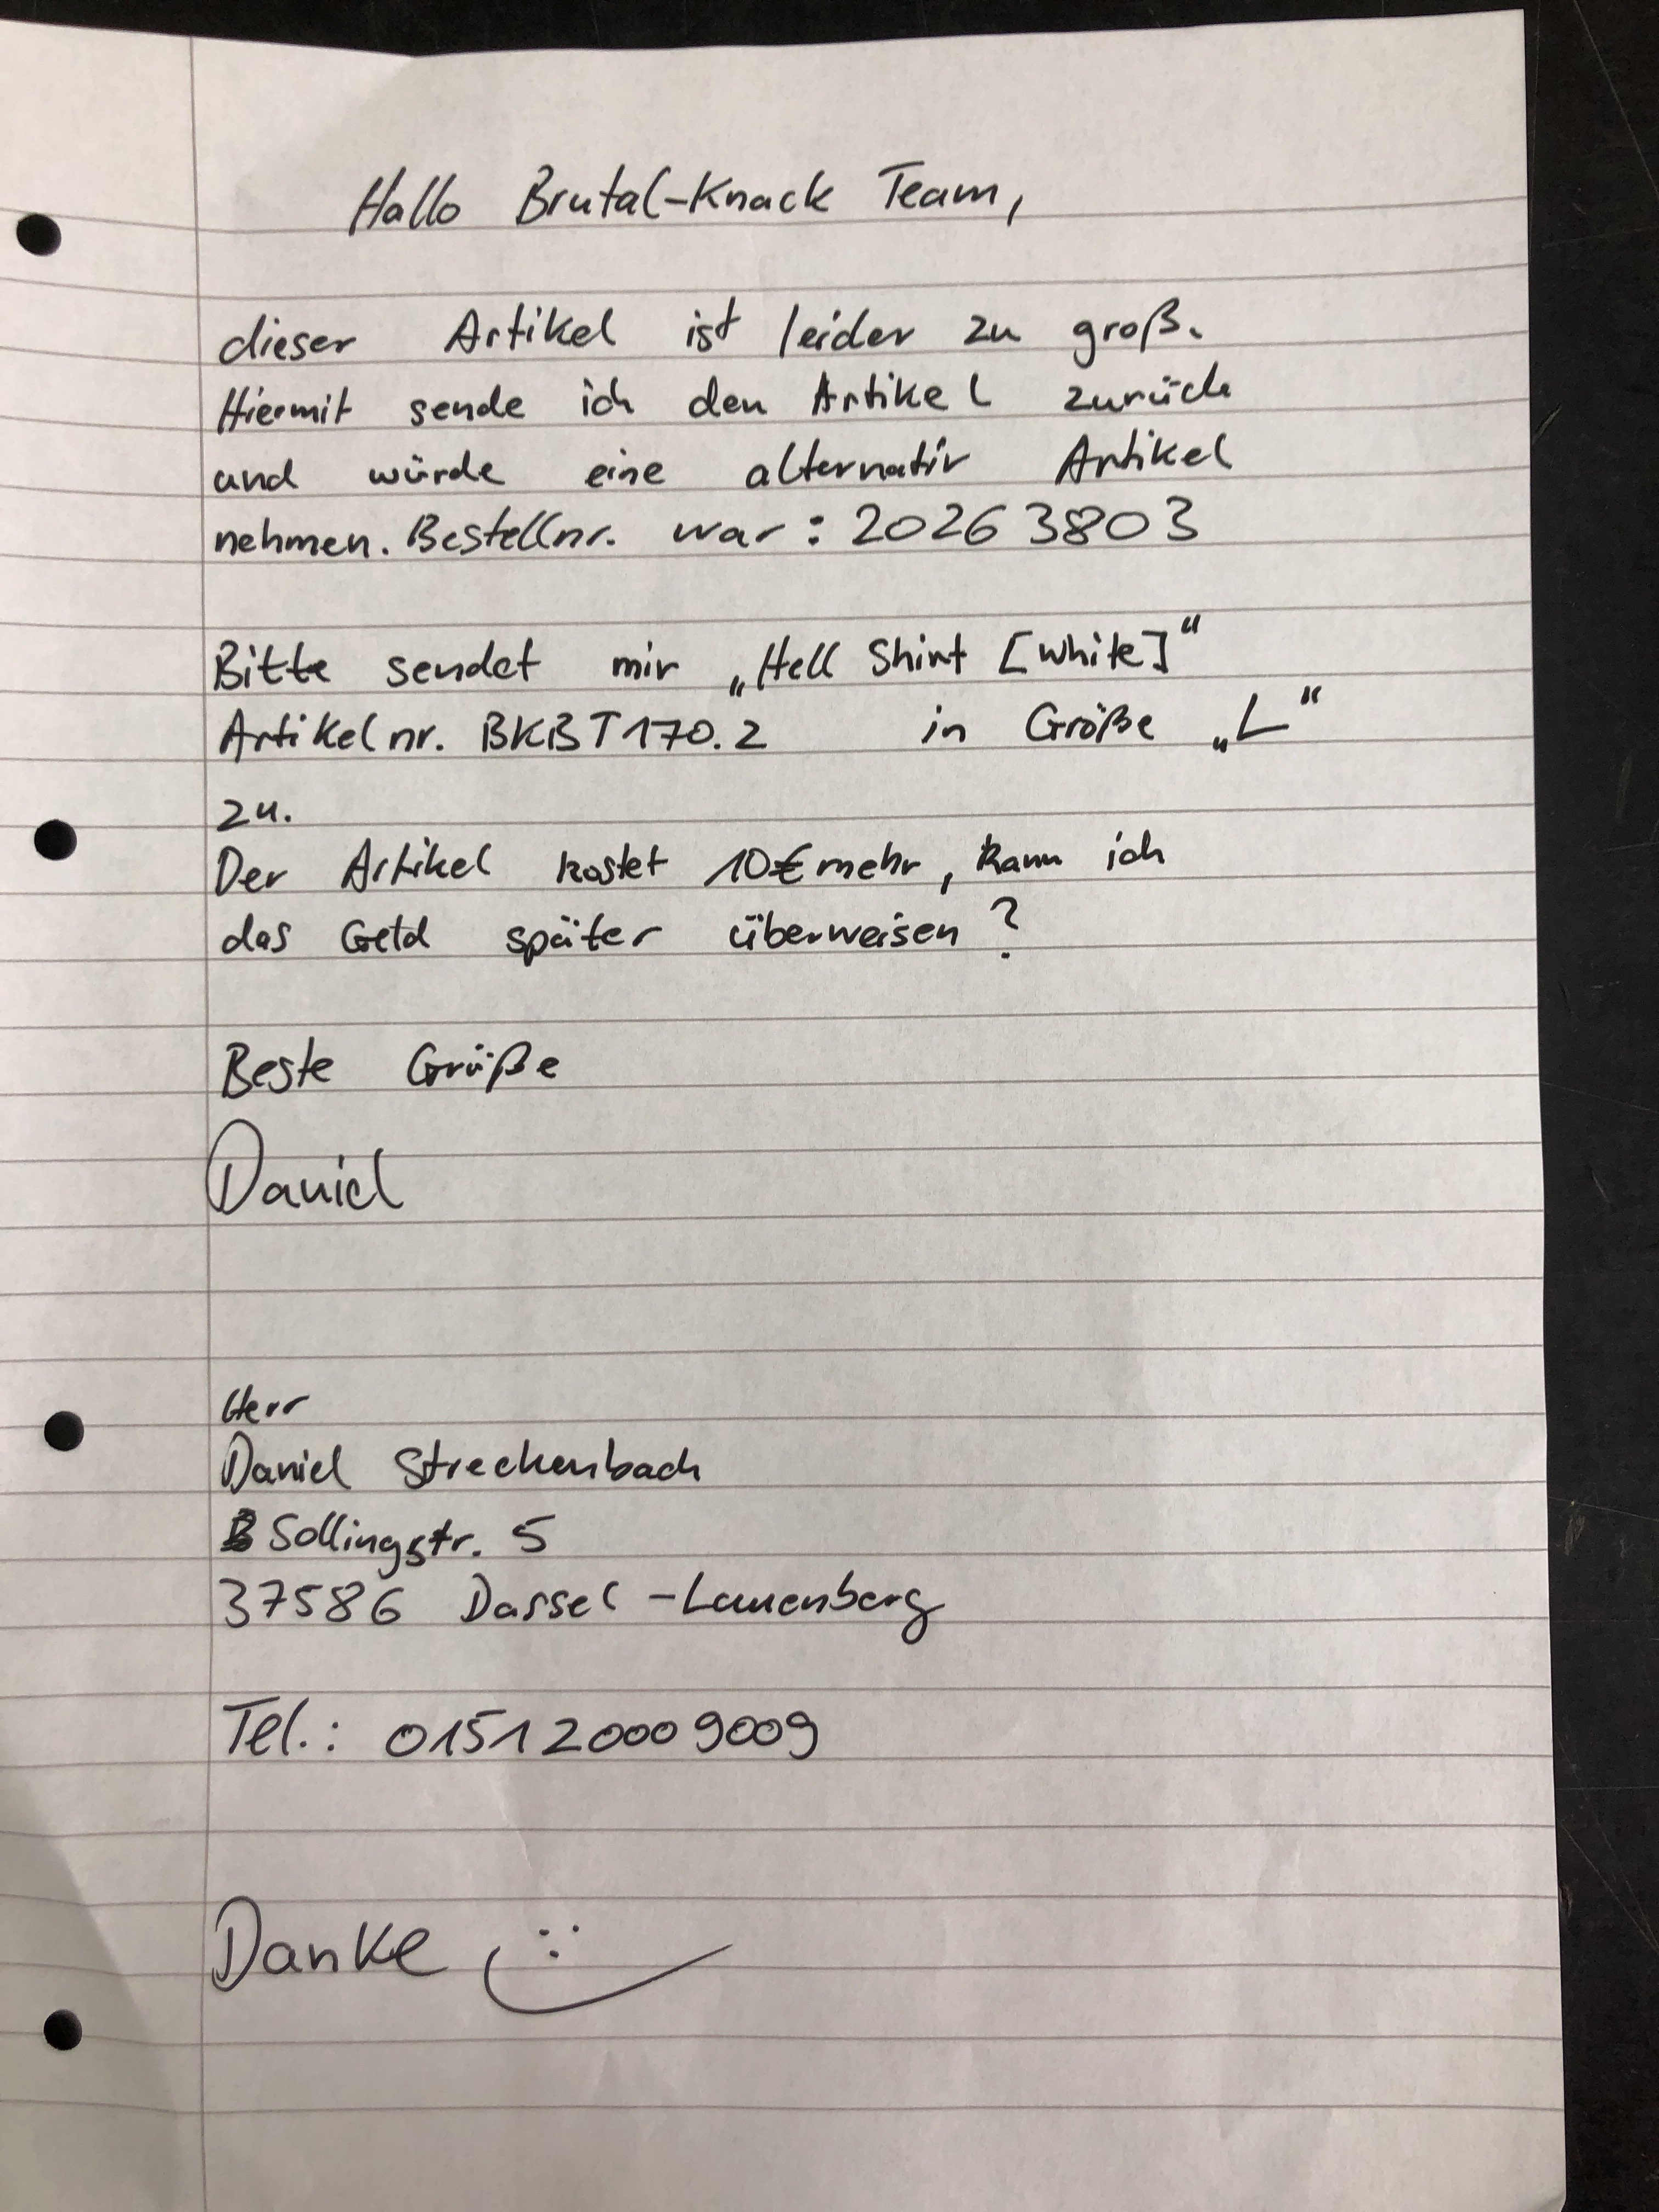 Hallo Brutal-Knack Team,
dieser Artikel ist leider zu groß.
Hiermit sende ich den Artikel zurück
und würde eine alternativ Artikel
nehmen. Bestellnr. war : 20263803
Bitte sendet mir „Hell Shirt [White]“
Artikelnr. BKBT170.2 in Größe „L“
zu.
Der Artikel kostet 10€ mehr, kann ich
das Geld später überweisen?
Beste Grüße
Daniel
Herr
Daniel Streckenbach
Sollingstr. 5
37586 Dassel - Lauenberg
Tel.: 015120009009
Danke :)